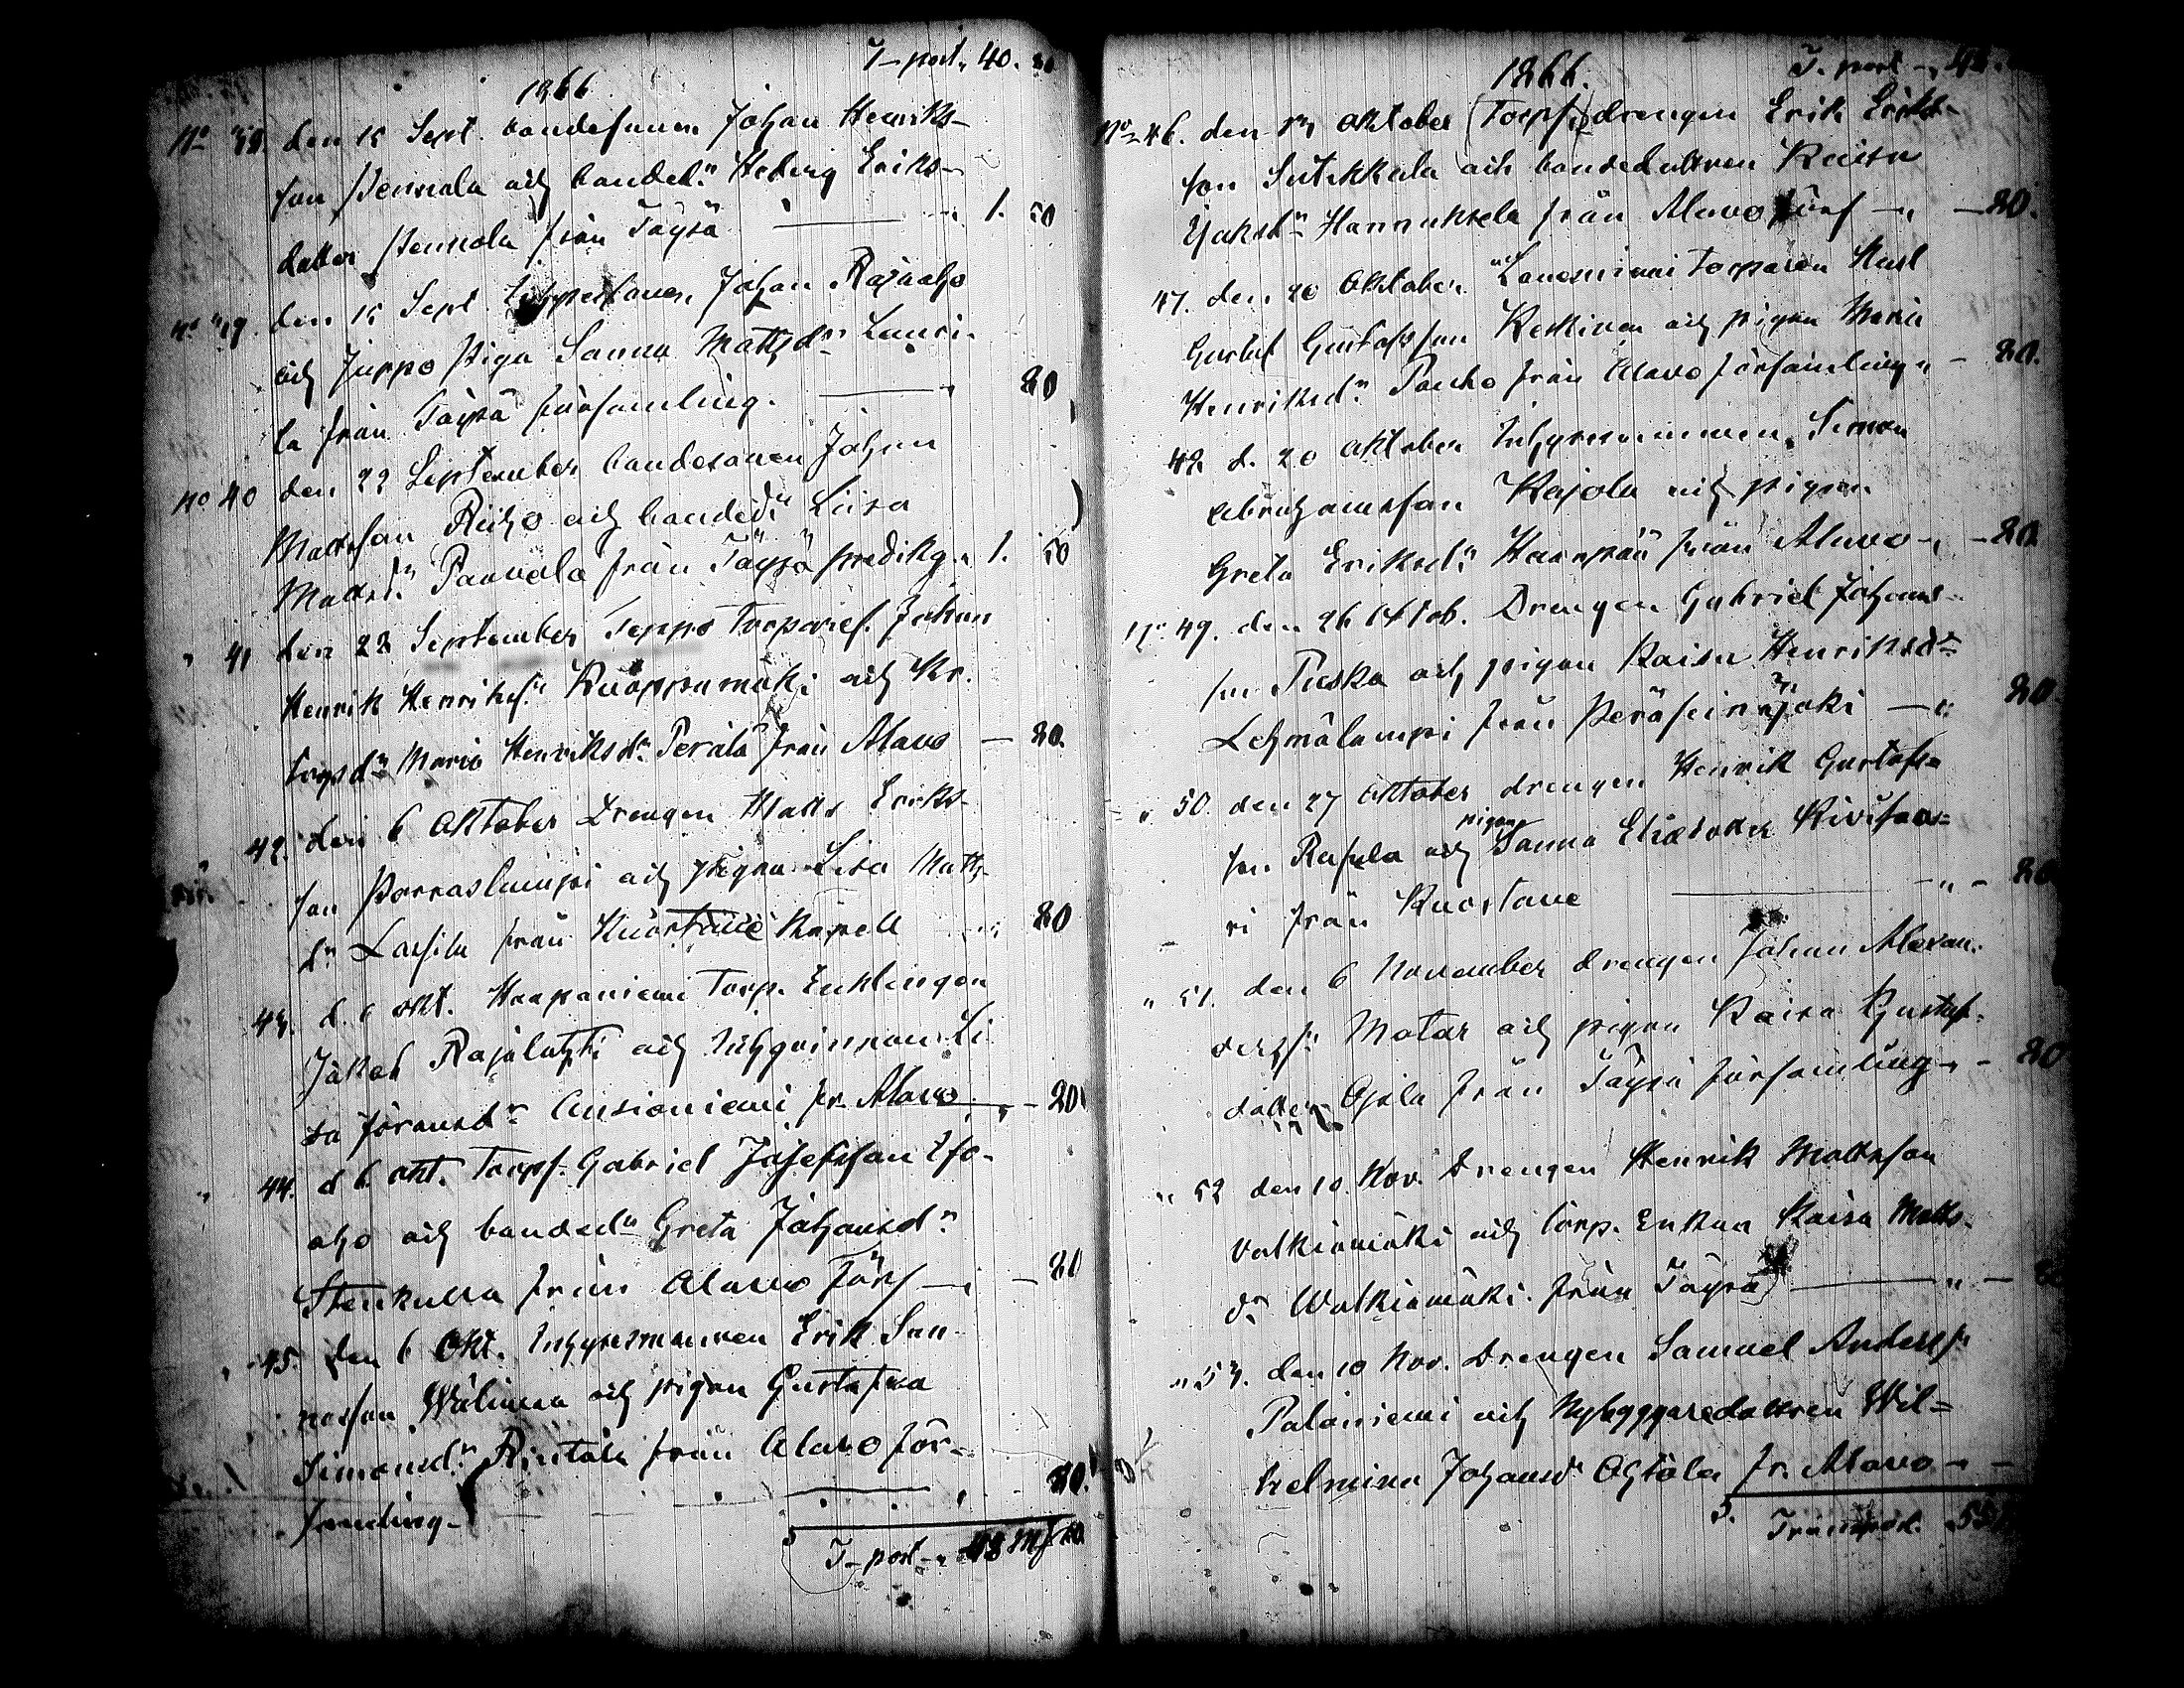 T-port. 40. 80
1866
No 38. den 15 Sept. bondesonen Johan Henriks-
son Pennala och bonded:n Hedvig Eriks-
datter Pennola från Töysä 1. 50
No 39. den 15 Sept. Johan Rajaaho
och Juppo Piga Sanna Mattsd:r Lauri-
la från Töysä församling. 80
No 40 den 22 September bondesonen Johan
Mattsson Riiho och bonded:n Liisa
Mattsd:r Paavola från Töysä predikg. 1. 50
" 41 den 22 September Seppo Torparef. Johan
Henrik Henrikss. Kuoppamäki och Kr.
torpd:r Maria Henriksd:r Perälä från Alavo — 80.
42. den 6 Oktober Drengen Matts Eriks-
son Porraslampi och pigan Lisa Matts-
d:r Lassila från Kuortane Kapell 80
43. d. 6 Okt. Haapaniemi Torp. Enklingen
Jakob Rajalahti och Inhysqvinnan Li
sa Göransd:r Ansioniemi fr. Alavo — 80
44. d 6 Okt. Torps. Gabriel Josefsson
aho och bonded:n Greta Johansd:r
Stenkulla från Alavo förs — 80
45. den 6 Okt. Inhysesmannen Erik San-
nasson Wälimaa och pigan Gustafva
Simonsd:r Rintala från Alavo för-
samling. 80.
T-port. 48 Mk 80
1866. T. port
No 46. den Oktober Torps. drengen Erik Eriks-
son Sulkkala och bondedottren Kaisa
Jaksd:r Hannuksela från Alavo förs — 80.
47. den 20 Oktober Torparen Karl
Gustaf Gustafsson Keskinen och pigan Maria
Henriksd:r Panko från Alavo församling — 80.
48. d. 20 Oktober Inhysesmannen Simon
Abrahamsson Kajola och pigan
Greta Eriksd:r Haanpää från Alavo — 80
No 49. den 26 Oktob. Drengen Gabriel Johans-
son Puska och pigan Kaisa Henriksd:r
Lehmälampi från Peräseinäjoki — 80
" 50. den 27 Oktober drengen Henrik Gustafs-
son Rasula och pigan Sanna Eliædotter Kivisaa-
ri från Kuortane — 80
" 51. den 6 November drengen Johan Alexan-
derss. Matar och pigan Kaisa Gustafs-
dotter Ojala från Töysä församling — 80
" 52 den 10 Nov. Drengen Henrik Mattsson
Valkiamäki och torp. Enkan Kaisa Matts-
d:r Walkiamäki från Töysä
" 53. den 10 Nov. Drengen Samuel Anderss.
Palaniemi och Nybyggaredottren Wil-
helmina Johansd:r Ahtola fr. Alavo —
Transport. 55